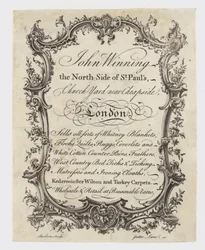 John Winning
the North-Side of St. Paul's,
Church Yard near Cheapside,
London
Sells all sorts of Whitney Blankets,
Flocks, Quilts, Ruggs, Coverlets and
White Cotton Counter Panes, Feathers,
West Country Bed Ticks & Tickings,
Matresses and Ironing Cloaths,
Kidderminster Wilton and Turkey Carpets
Wholesale & Retail at Reasonable Rates